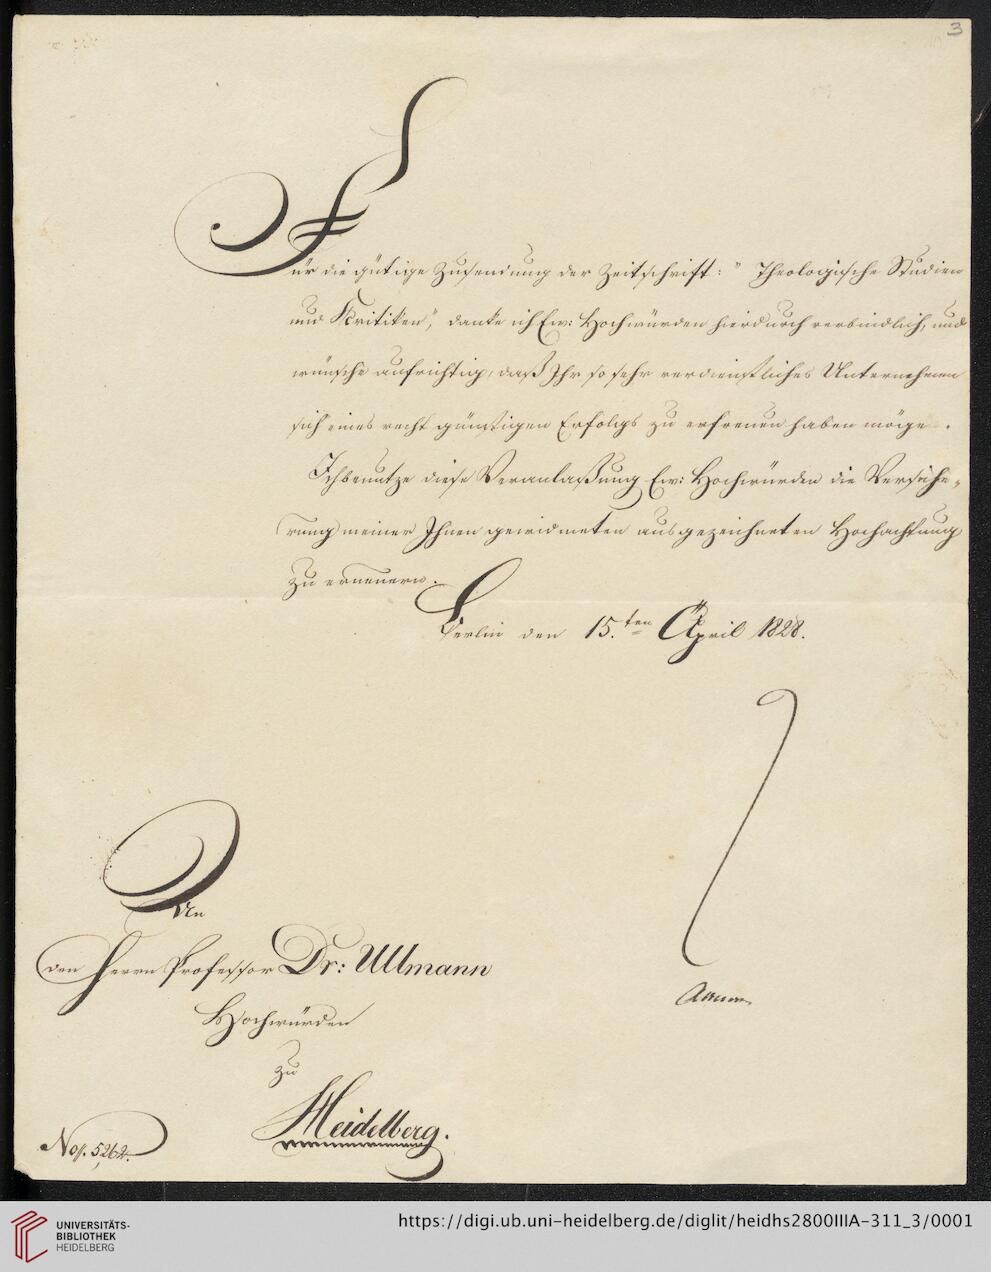 3
Für die gütige Zusendung der Zeitschrift: "Theologische Studien
und Kritiken", danke ich Ew: Hochwürden hierdurch verbindlich, und
wünsche aufrichtig, daß Ihr so sehr verdienstliches Unternehmen
sich eines recht günstigen Erfolgs zu erfreuen haben möge.
Ich benutze diese Veranlaßung Ew: Hochwürden die Versiche-
rung meiner Ihnen gewidmeten ausgezeichneten Hochachtung
zu erneuern.
Berlin den 15.ten April 1828.
An
den Herrn Professor Dr: Ullmann
Hochwürden
zu
Heidelberg.
No. 5262.
UNIVERSITÄTS-
BIBLIOTHEK
HEIDELBERG
https://digi.ub.uni-heidelberg.de/diglit/heidhs2800IIIA-311_3/0001